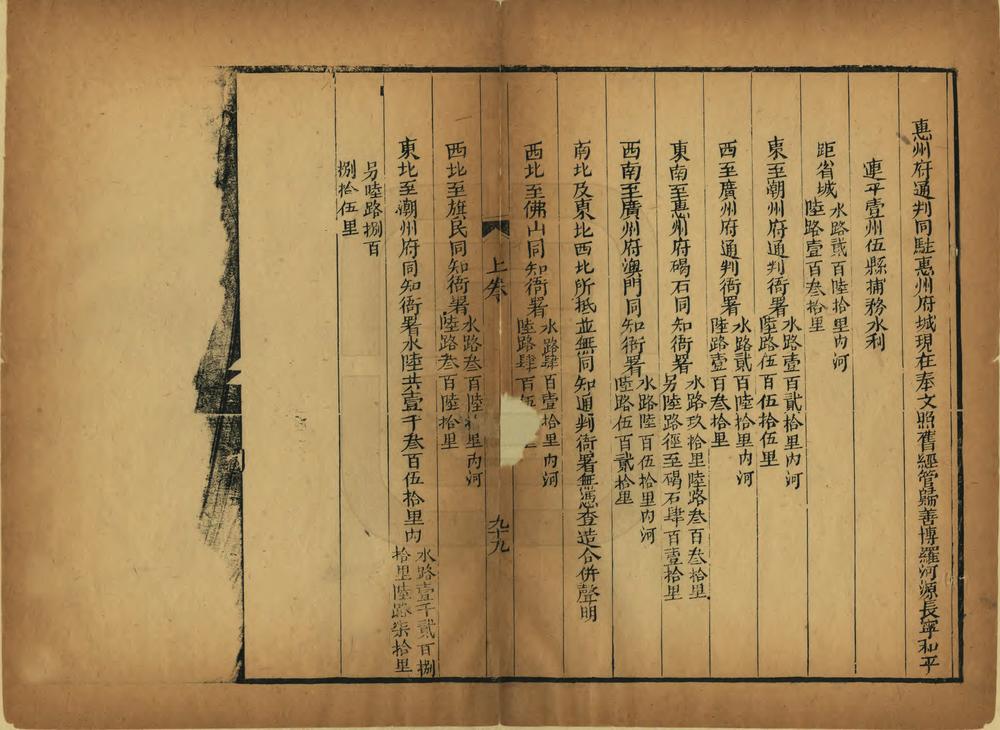 惠州府通判同駐惠州府城現在奉文照舊經管歸善博羅河源長寧和平
連平壹州伍縣捕務水利
距省城水路貳百陸拾里内河
陸路壹百叁拾里
東至潮州府通判衙署水路壹百貳拾里内河
陸路伍百伍拾伍里
西至廣州府通判衙署水路貳百陸拾里内河
陸路壹百叁拾里
東南至惠州府碣石同知衙署水路玖拾里陸路叁百叁拾里
另陸路徑至碣石肆百壹拾里
西南至廣州府澳門同知衙署水路陸百伍拾里内河
陸路伍百貳拾里
南北及東北西北所抵並無同知通判衙署無憑查造合併聲明
上卷
九十九
西北至佛山同知衙署水路肆百壹拾里内河
陸路肆百
西北至旗民同知衙署水路叁百陸拾里内河
陸路叁百陸拾里
東北至潮州府同知衙署水陸共壹千叁百伍拾里内水路壹千貳百捌
拾里陸路柒拾里
另陸路捌百
捌拾伍里